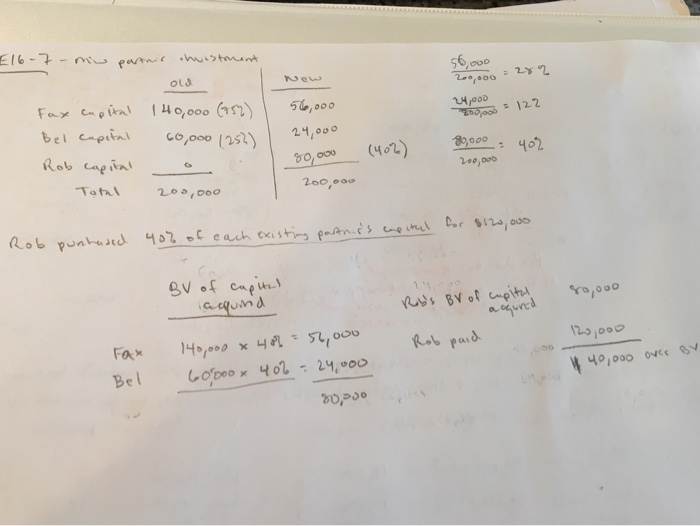 E16-7 - new partner investment
old New
Fax capital 140,000 (75%) 56,000
Bel capital 60,000 (25%) 24,000
Rob capital 0 80,000 (40%)
Total 200,000 200,000
56,000 / 200,000 = 28%
24,000 / 200,000 = 12%
80,000 / 200,000 = 40%
Rob purchased 40% of each existing partner's capital for $120,000
BV of capital
acquired
Fax 140,000 x 40% = 56,000
Bel 60,000 x 40% = 24,000
80,000
Rob's BV of capital
acquired 80,000
Rob paid 120,000
40,000 over BV